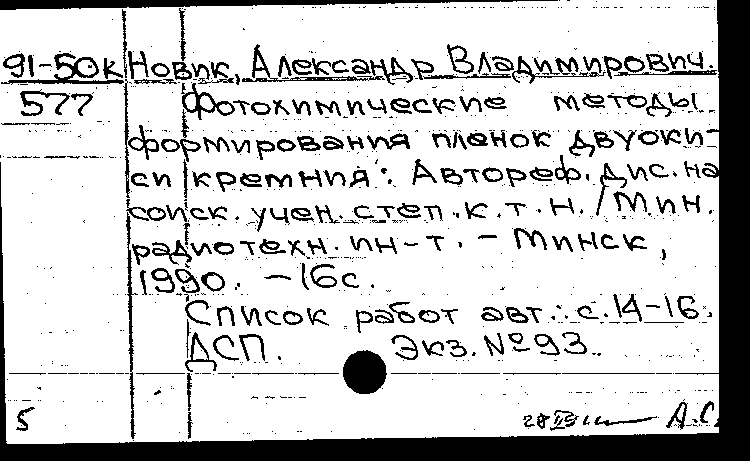 91-50к Новик, Александр Владимирович.
577 Фотохимические методы
формирования пленок двуоки-
си кремния: Автореф. дис. на
соиск. учен. степ. к. т. н. / Мин.
радиотехн. ин-т. - Минск,
1990. - 16 с.
Список работ авт.: с. 14-16.
ДСП. Экз. № 93.
5 А.С.